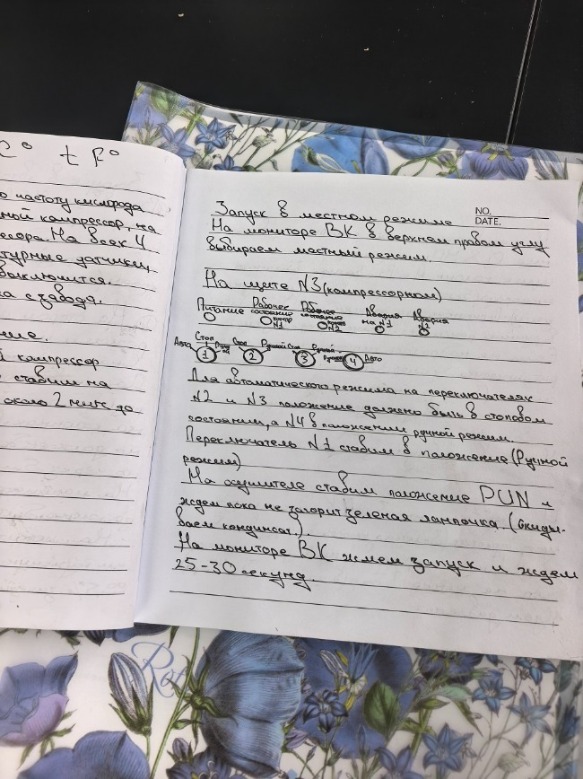 C° t F°
частоту кислорода
ной компрессор, на
ссора. На всех 4
турные датчики
выключится.
на с завода.
ние.
й компрессор
ставим на
около 2 мин. до
NO.
DATE.
Запуск в местном режиме
На мониторе ВК в верхнем правом углу
выбираем мастный режим.
На щите N3 (компрессорном)
Питание Рабочее состояние N1 Рабочее состояние N2 Авария на N1 Авария
Авто Стоп 1 Стоп 2 Ручной Стоп 3 Ручной 4 Авто
Для автоматического режима на переключателях
N2 и N3 положение должно быть в стоповом
состоянии, а N4 в положении ручной режим.
Переключатель N1 ставим в положение (Ручной
режим)
На осушителе ставим положение РUN и
ждем пока не загорит зеленая лампочка. (Скиды-
ваем кондинсат.)
На мониторе ВК жмем запуск и ждем
25-30 секунд.